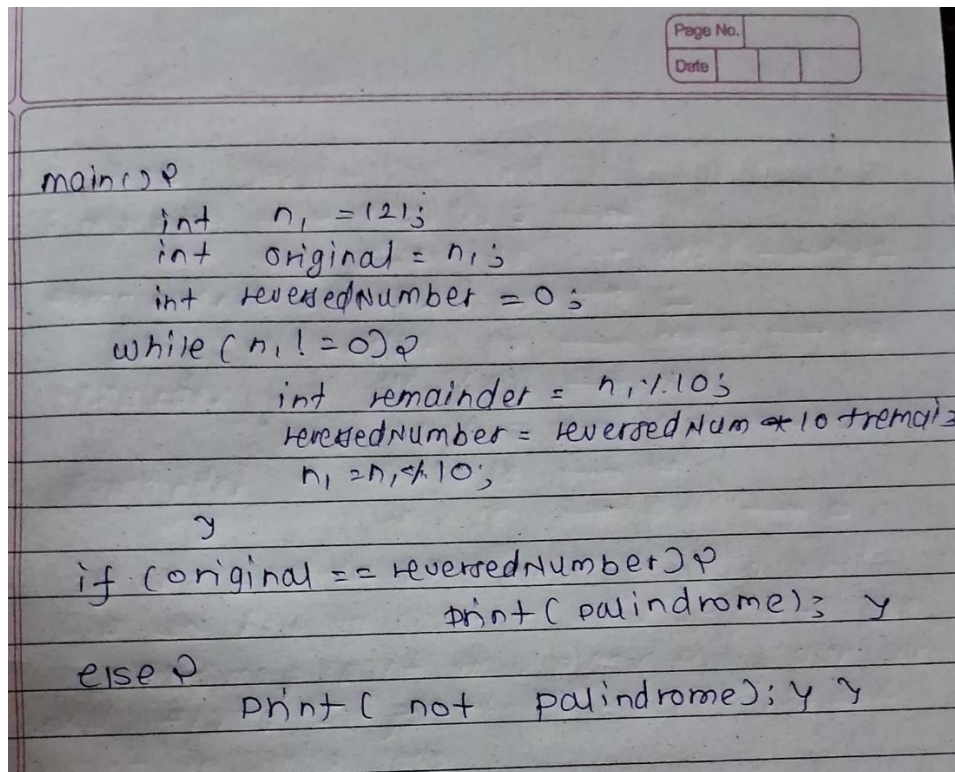 Page No.
Date
main() {
int n1 = 121;
int original = n1;
int reversedNumber = 0;
while (n1 != 0) {
int remainder = n1 % 10;
reversedNumber = reversedNum * 10 + remai
n1 = n1 % 10;
}
if (original == reversedNumber) {
print ( palindrome); }
else {
print ( not palindrome); } }